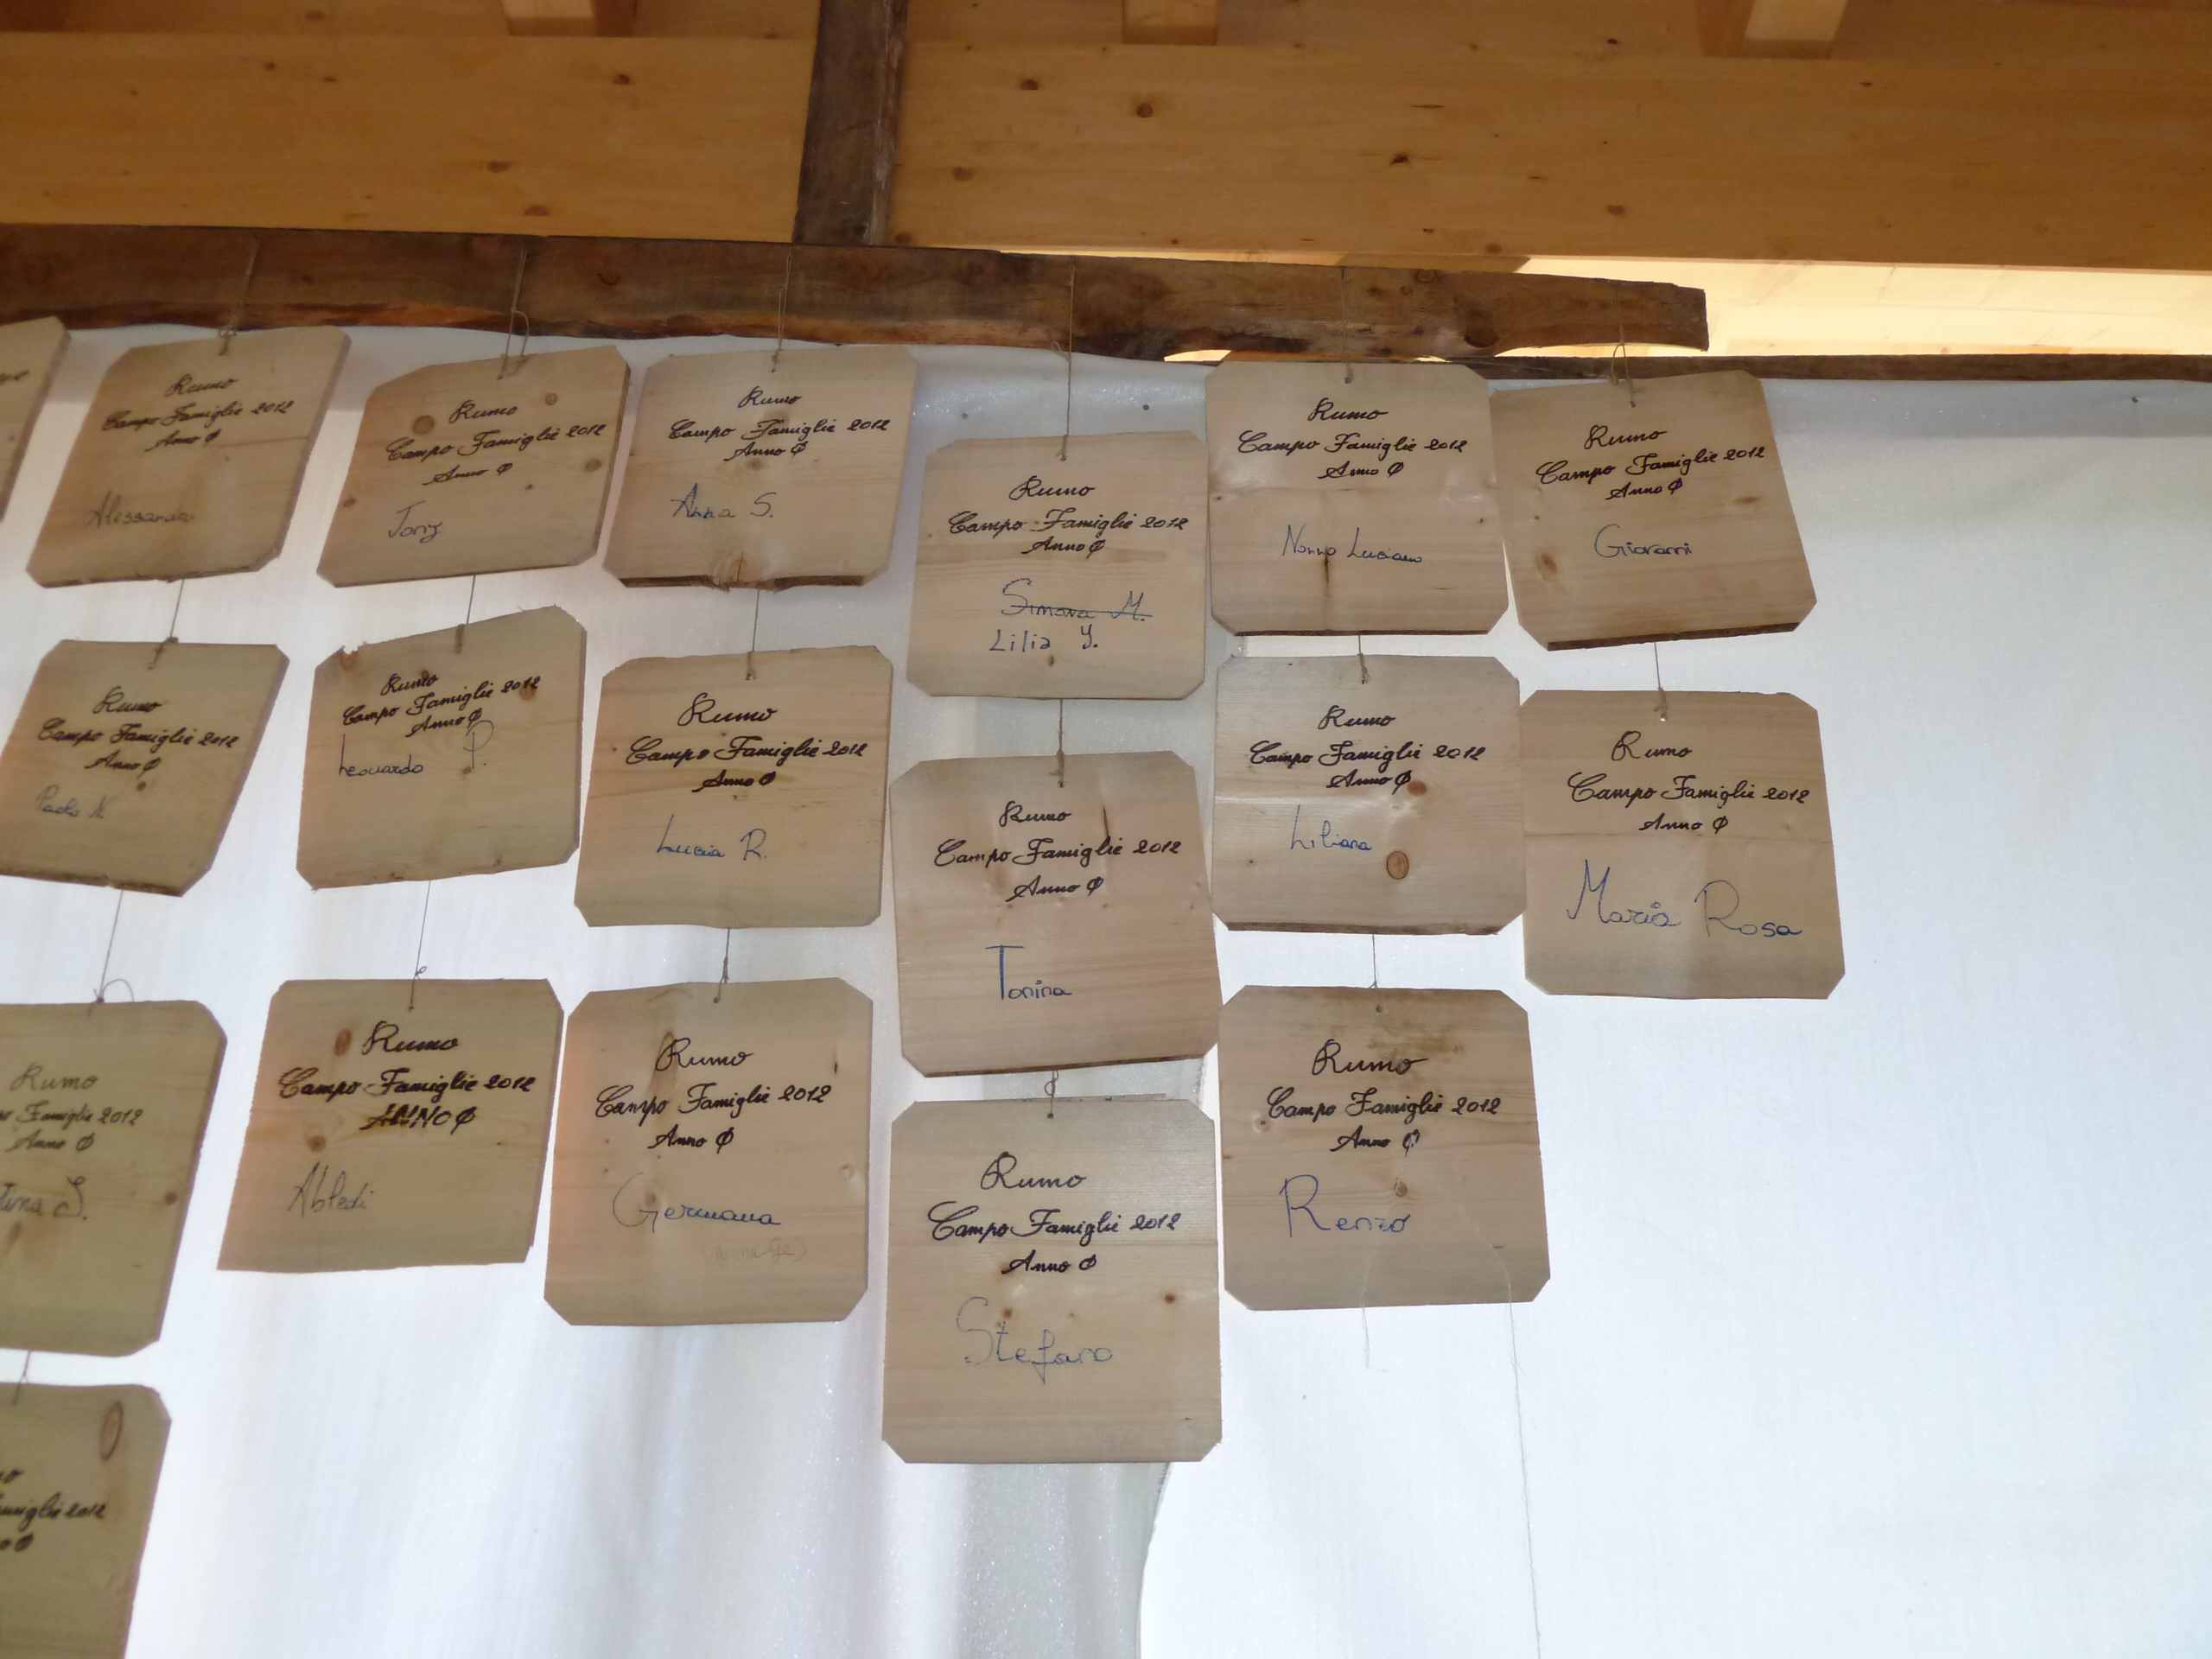 Rumo
Campo Famiglie 2012
Anno Ø
Rumo
Campo Famiglie 2012
Anno Ø
Paolo N.
Rumo
Famiglie 2012
Anno Ø
2012
Rumo
Campo Famiglie 2012
Anno Ø
Rumo
Campo Famiglie 2012
Anno Ø
Leonardo P.
Rumo
Campo Famiglie 2012
ANNO Ø
Rumo
Campo Famiglie 2012
Anno Ø
Anna S.
Rumo
Campo Famiglie 2012
Anno Ø
Lucia R.
Rumo
Campo Famiglie 2012
Anno Ø
Germana
Rumo
Campo Famiglie 2012
Anno Ø
Simona M.
Lilia Y.
Rumo
Campo Famiglie 2012
Anno Ø
Tonina
Rumo
Campo Famiglie 2012
Anno Ø
Stefano
Rumo
Campo Famiglie 2012
Anno Ø
Nonno Luciano
Rumo
Campo Famiglie 2012
Anno Ø
Liliana
Rumo
Campo Famiglie 2012
Anno Ø
Renzo
Rumo
Campo Famiglie 2012
Anno Ø
Giovanni
Rumo
Campo Famiglie 2012
Anno Ø
Maria Rosa